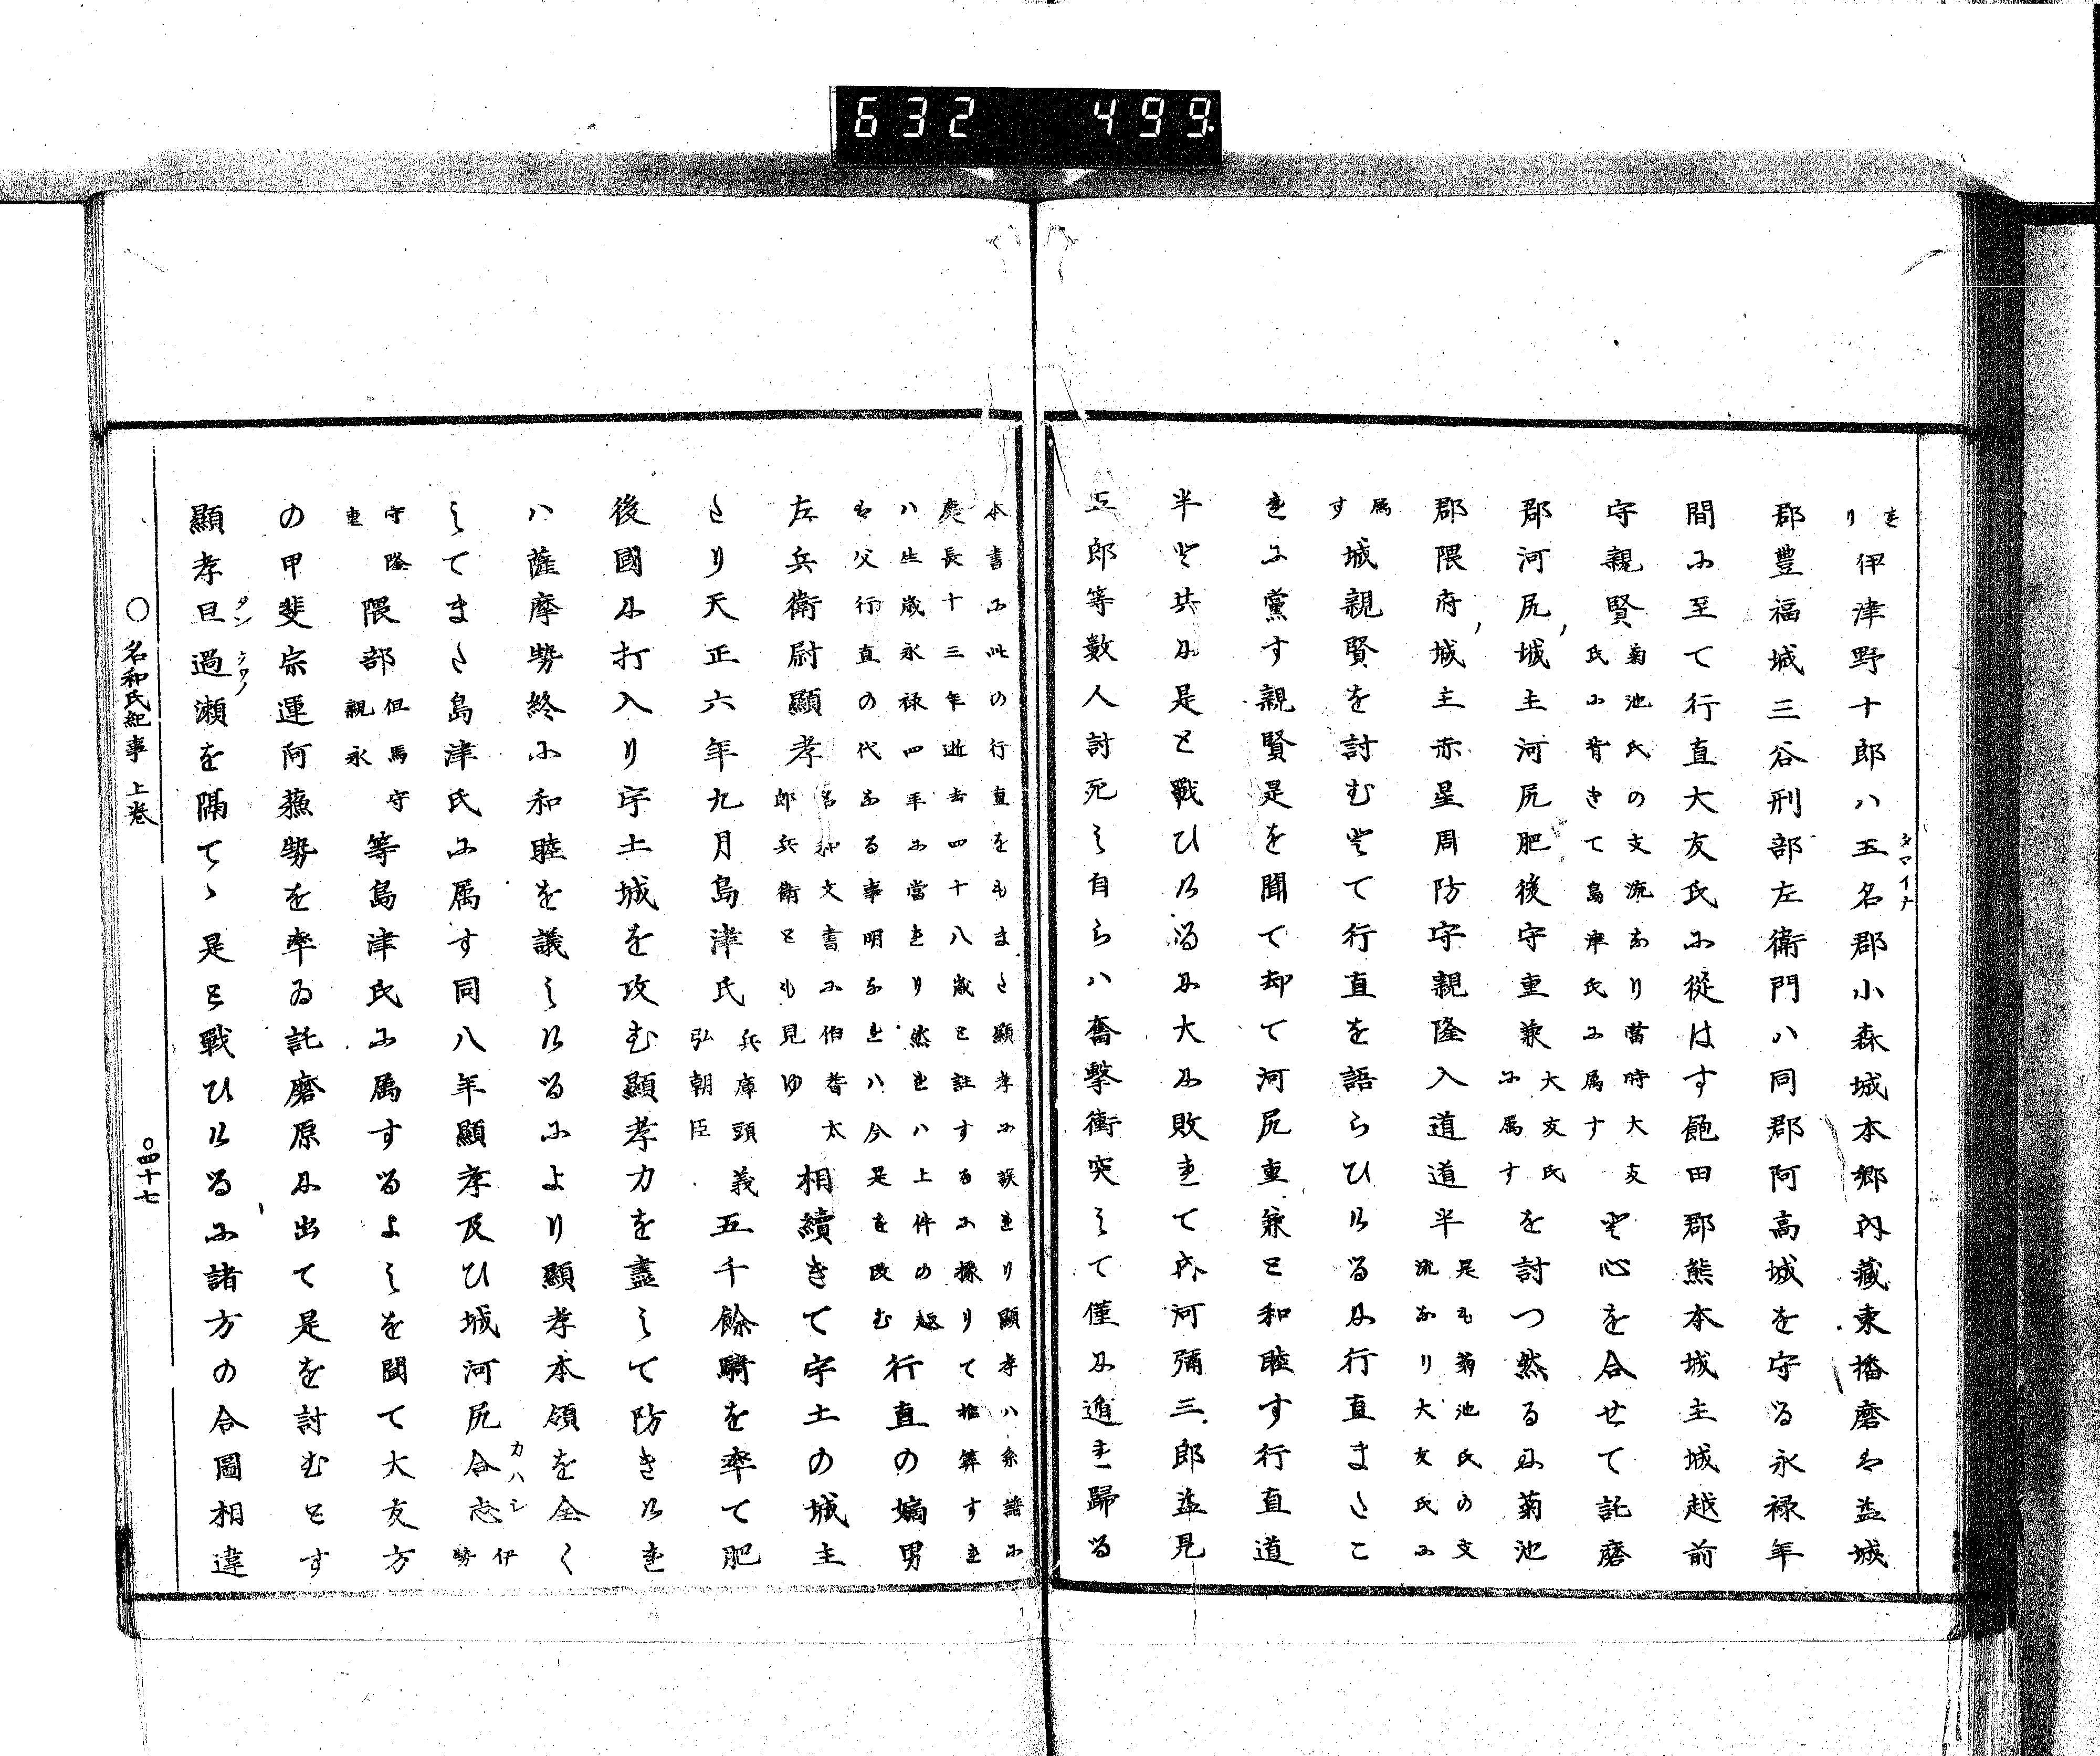 632 499
れり伊津野十郎ハ玉名郡小森城本郷内藏東播磨ハ益城
タマイナ
郡豊福城三谷刑部左衛門ハ同郡阿高城を守る永禄年
間に至て行直大友氏に従はす飽田郡熊本城主城越前
守親賢菊池氏の支流なり當時大友氏に背きて島津氏に属すと心を合せて託磨
郡河尻城主河尻肥後守重兼大友氏に属すを討つ然るに菊池
郡隈府城主赤星周防守親隆入道道半是も菊池氏の支流なり大友氏に
属す城親賢を討むとて行直を語らひけるに行直またこ
れに黨す親賢是を聞て却て河尻重兼と和睦す行直道
半と共に是と戰ひけるに大に敗れて家河彌三郎益見
五郎等數人討死し自らハ奮擊衝突して僅に遁れ歸る
本書に此の行直をもまた顯孝に誤れり顯孝ハ系譜に
慶長十三年逝去四十八歳と註するに據りて推算すれ
ハ生歳永禄四年に當れり然れハ上件の
ハ父行直の代なる事明なれハ今是を改む
行直の嫡男
左兵衛尉顯孝名和文書に伯耆太郎兵衛とも見ゆ相續きて宇土の城主
たり天正六年九月島津氏兵庫頭義弘朝臣五千餘騎を率て肥
後國に打入り宇土城を攻む顯孝力を盡して防きけれ
ハ薩摩勢終に和睦を議しけるにより顯孝本領を全く
してまた島津氏に属す同八年顯孝及ひ城河尻合志伊勢
カハシ
守隆重隈部但馬守親永等島津氏に属するよしを聞て大友方
の甲斐宗運阿蘇勢を率ゐ託磨原に出て是を討むとす
顯孝旦過瀬を隔てゝ是と戰ひけるに諸方の合圖相違
タンクワノ
○名和氏紀事 上巻
○四十七